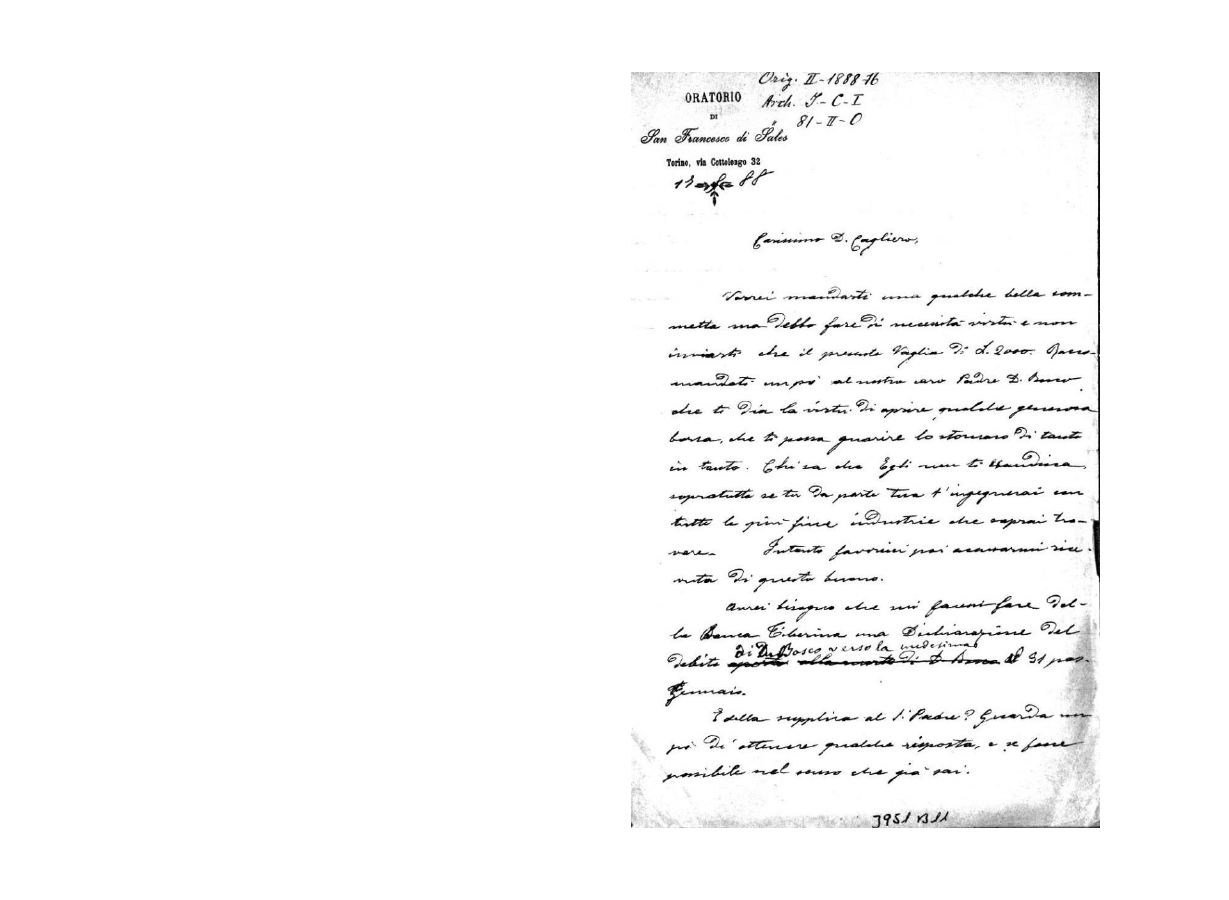 Orig. II-1888-16
ORATORIO
Arch. I-C-I
DI
81-II-O
San Francesco di Sales
Torino, via Cottolengo 32
88
Carissimo D. Cagliero,
Vorrei mandarti una qualche bella som-
metta ma debbo fare di necessità virtù e non
inviarti che il presente Vaglia di L. 2000. Racco-
mandati un po' al nostro caro Padre D. Bosco
che ti dia la virtù di aprire qualche generosa
borsa, che ti possa guarire lo stomaco di tanto
in tanto. Chi sa che Egli non ti esaudisca,
sopratutto se tu da parte tua t'ingegnerai con
tutte le più fine industrie che saprai tro-
vare. Intanto favorisci poi accusarmi rice-
vuta di questo buono.
Avrei bisogno che mi facessi fare dal-
la Banca Tiberina una Dichiarazione del
di D. Bosco verso la medesima
debito aperto alla morte di D. Bosco al 31 pas.
Gennaio.
E della supplica al S. Padre? Guarda un
po' di ottenere qualche risposta, e se fosse
possibile nel senso che già sai.
3951 B 11